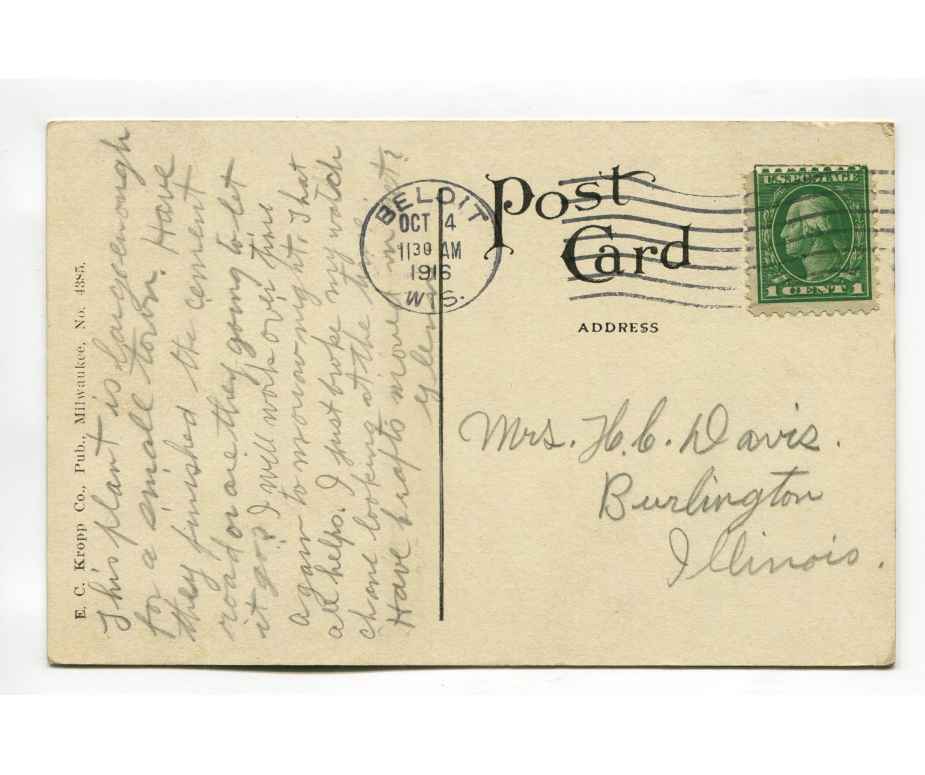 E. C. Kropp Co., Pub., Milwaukee, No. 4385.
This plant is large enough
for a small town. Have
they finished the cement
road or are they going to let
it go? I will work over time
again tomorrow night. That
all helps. I just broke my watch
chane looking at the time
Have Krafts moved most?
Glen
BELOIT
OCT 4
1130 AM
1916
WIS.
Post
Card
U.S. POSTAGE
1 CENT 1
ADDRESS
Mrs. H. C. Davis.
Burlington
Illinois.